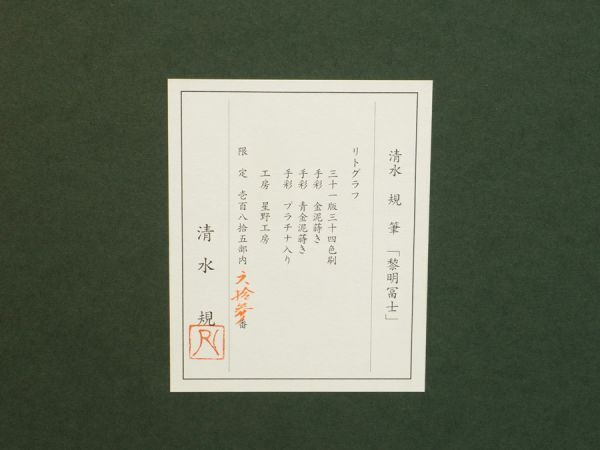 清水 規 筆 「黎明冨士」
リトグラフ
三十一版三十四色刷
手彩 金泥蒔き
手彩 青金泥蒔き
手彩 プラチナ入り
工房 星野工房
限 定 壱百八拾五部内 六拾 番
清 水 規